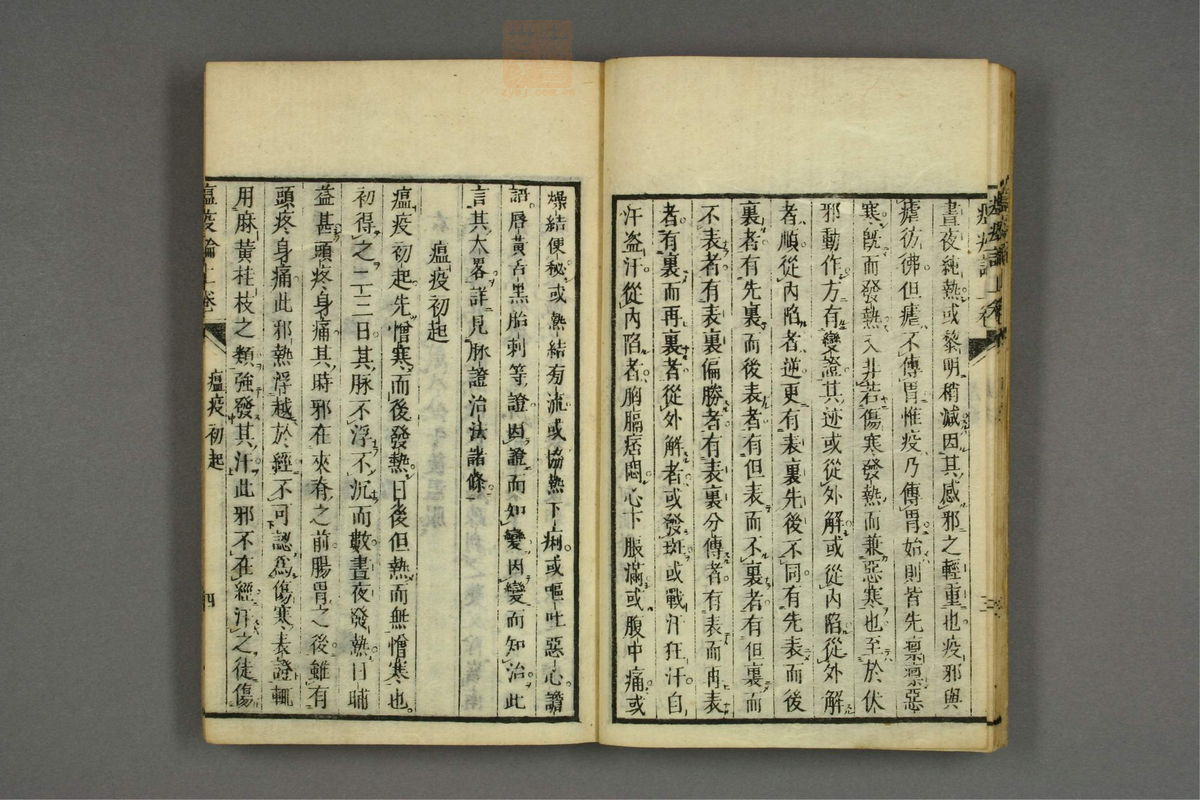 晝夜純熱或黎明稍減因其感邪之輕重也疫邪與
瘧彷彿但瘧不傳胃惟疫乃傳胃始則皆先凛凛惡
寒旣而發熱又非若傷寒發熱而兼惡寒也至於伏
邪動作方有變證其迹或從外解或從內陷從外解
者順從內陷者逆更有表裏先後不同有先表而後
裏者有先裏而後表者有但表而不裏者有但裏而
不表者有表裏偏勝者有表裏分傳者有表而再表
者有裏而再裏者從外解者或發斑或戰汗狂汗自
汗盗汗從內陷者胸膈痞悶心下脹滿或腹中痛或
燥結便秘或熱結旁流或協熱下痢或嘔吐惡心譫
語唇黃舌黑胎刺等證因證而知變因變而知治此
言其大畧詳見脉證治法諸條
瘟疫初起
瘟疫初起先憎寒而後發熱日後但熱而無憎寒也
初得之二三日其脉不浮不沉而數晝夜發熱日晡
益甚頭疼身痛其時邪在夾脊之前腸胃之後雖有
頭疼身痛此邪熱浮越於經不可認爲傷寒表證輒
用麻黃桂枝之類強發其汗此邪不在經汗之徒傷
瘟疫論上卷
瘟疫初起
四